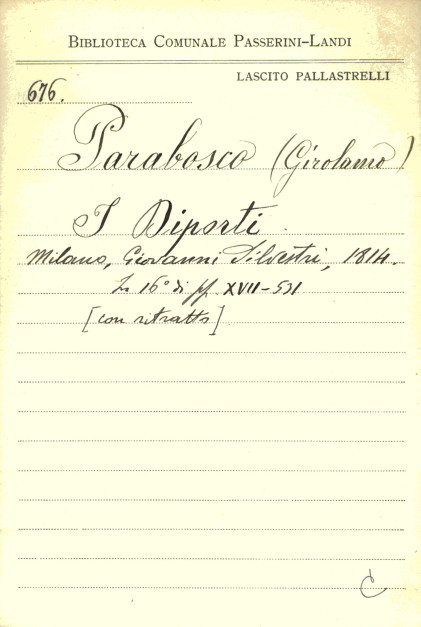 BIBLIOTECA COMUNALE PASSERINI-LANDI
LASCITO PALLASTRELLI
676.
Parabosco (Girolamo)
I Diporti.
Milano, Giovanni Silvestri, 1814.
In 16° di pp. XVII-531
[con ritratto]
C